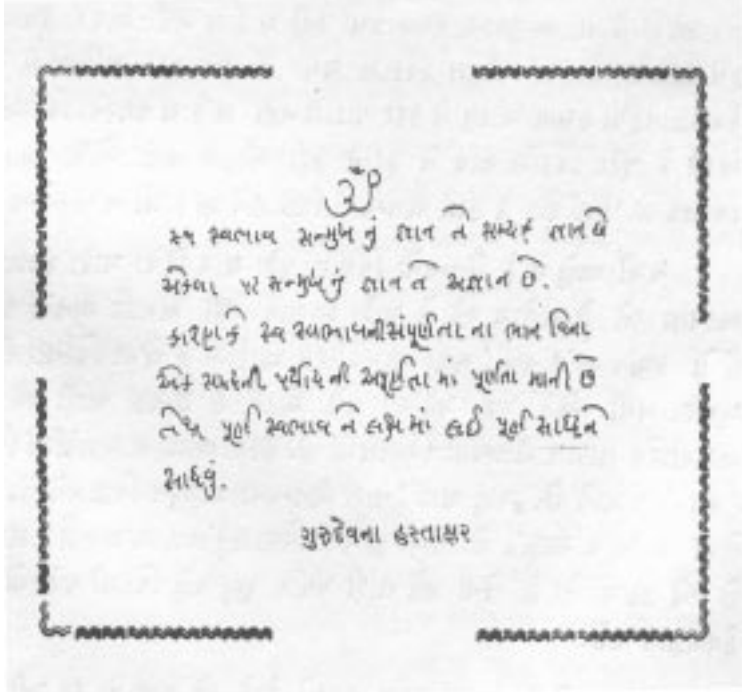 ૐ
સ્વ સ્વભાવ સન્મુખ નું જ્ઞાન તે સમ્યક્ જ્ઞાન છે
એકલા પર સન્મુખનું જ્ઞાન તે અજ્ઞાન છે.
કારણકે સ્વ સ્વભાવની સંપૂર્ણતા ના ભાન વિના
એક સમયની પર્યાય ની અપૂર્ણતા માં પૂર્ણતા માની છે
તેથી પૂર્ણ સ્વભાવ ને લક્ષ માં લઈ પૂર્ણ સાધ્યને
સાધવું.
ગુરુદેવના હસ્તાક્ષર